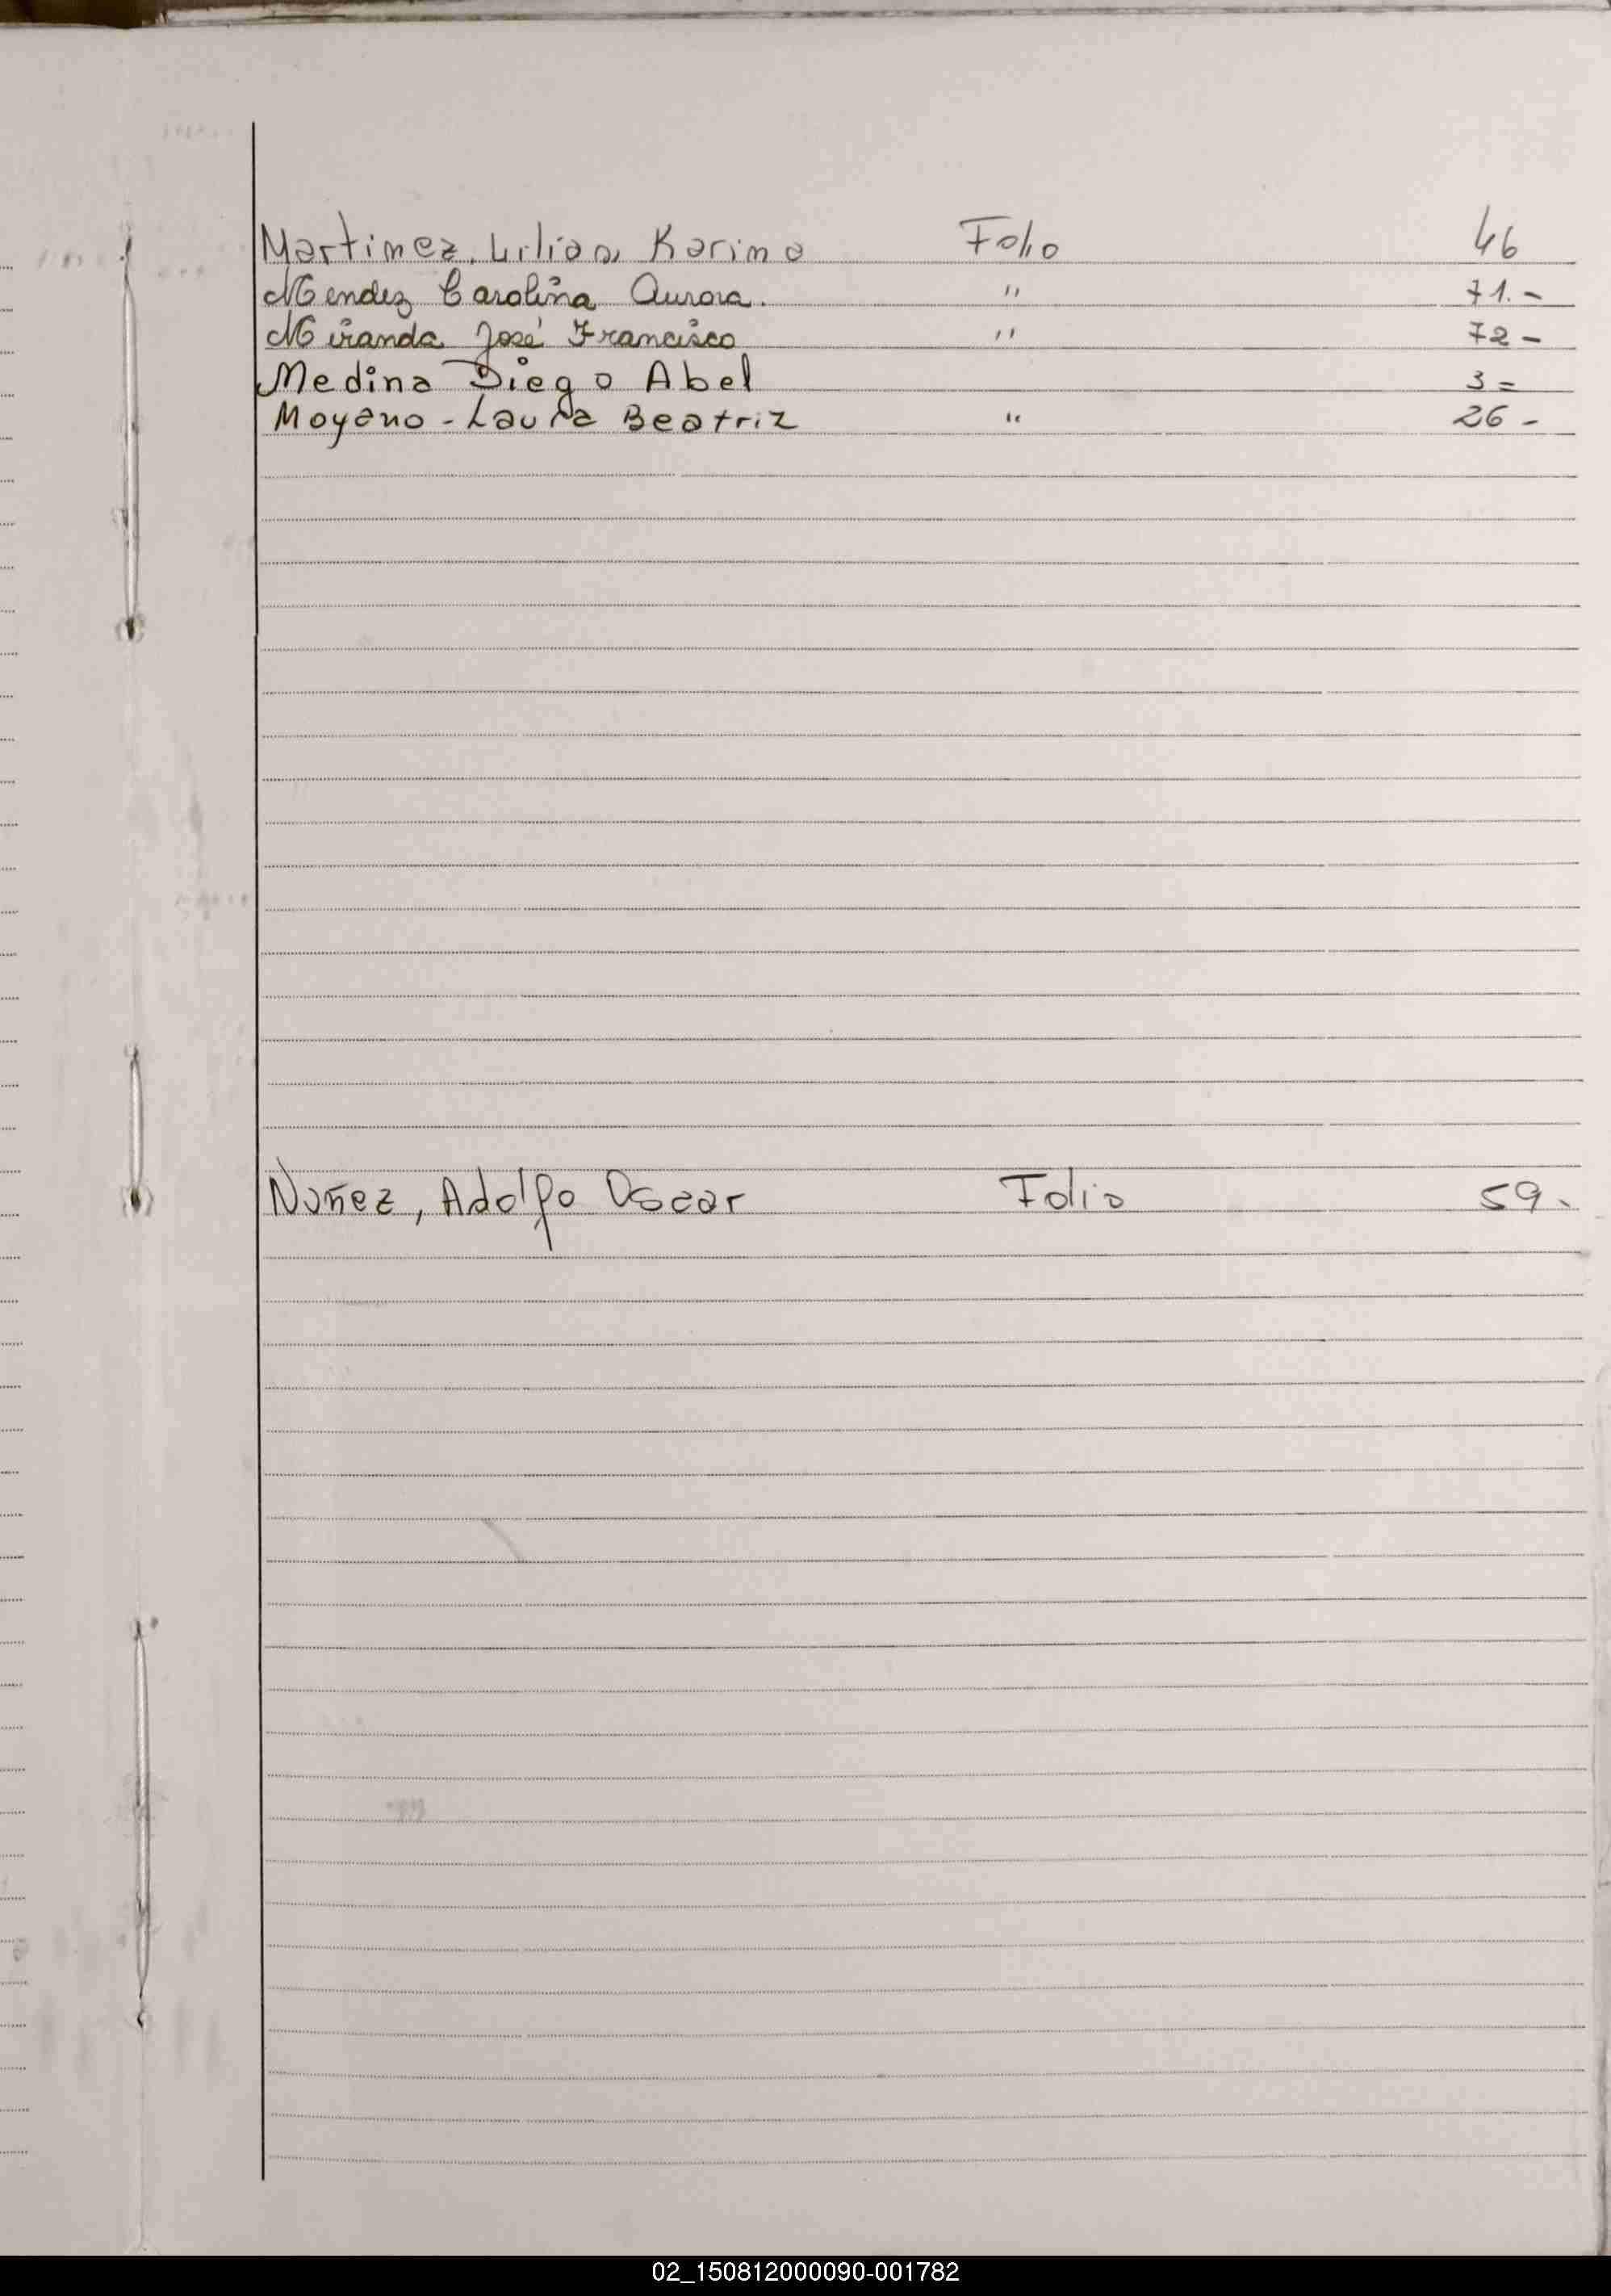 Martinez, Lilian Karina Folio 46
Mendez Carolina Aurora. " 71.-
Miranda José Francisco " 72-
Medina Diego Abel 3=
Moyano - Laura Beatriz " 26-
Nuñez, Adolfo Oscar Folio 59.
02_150812000090-001782